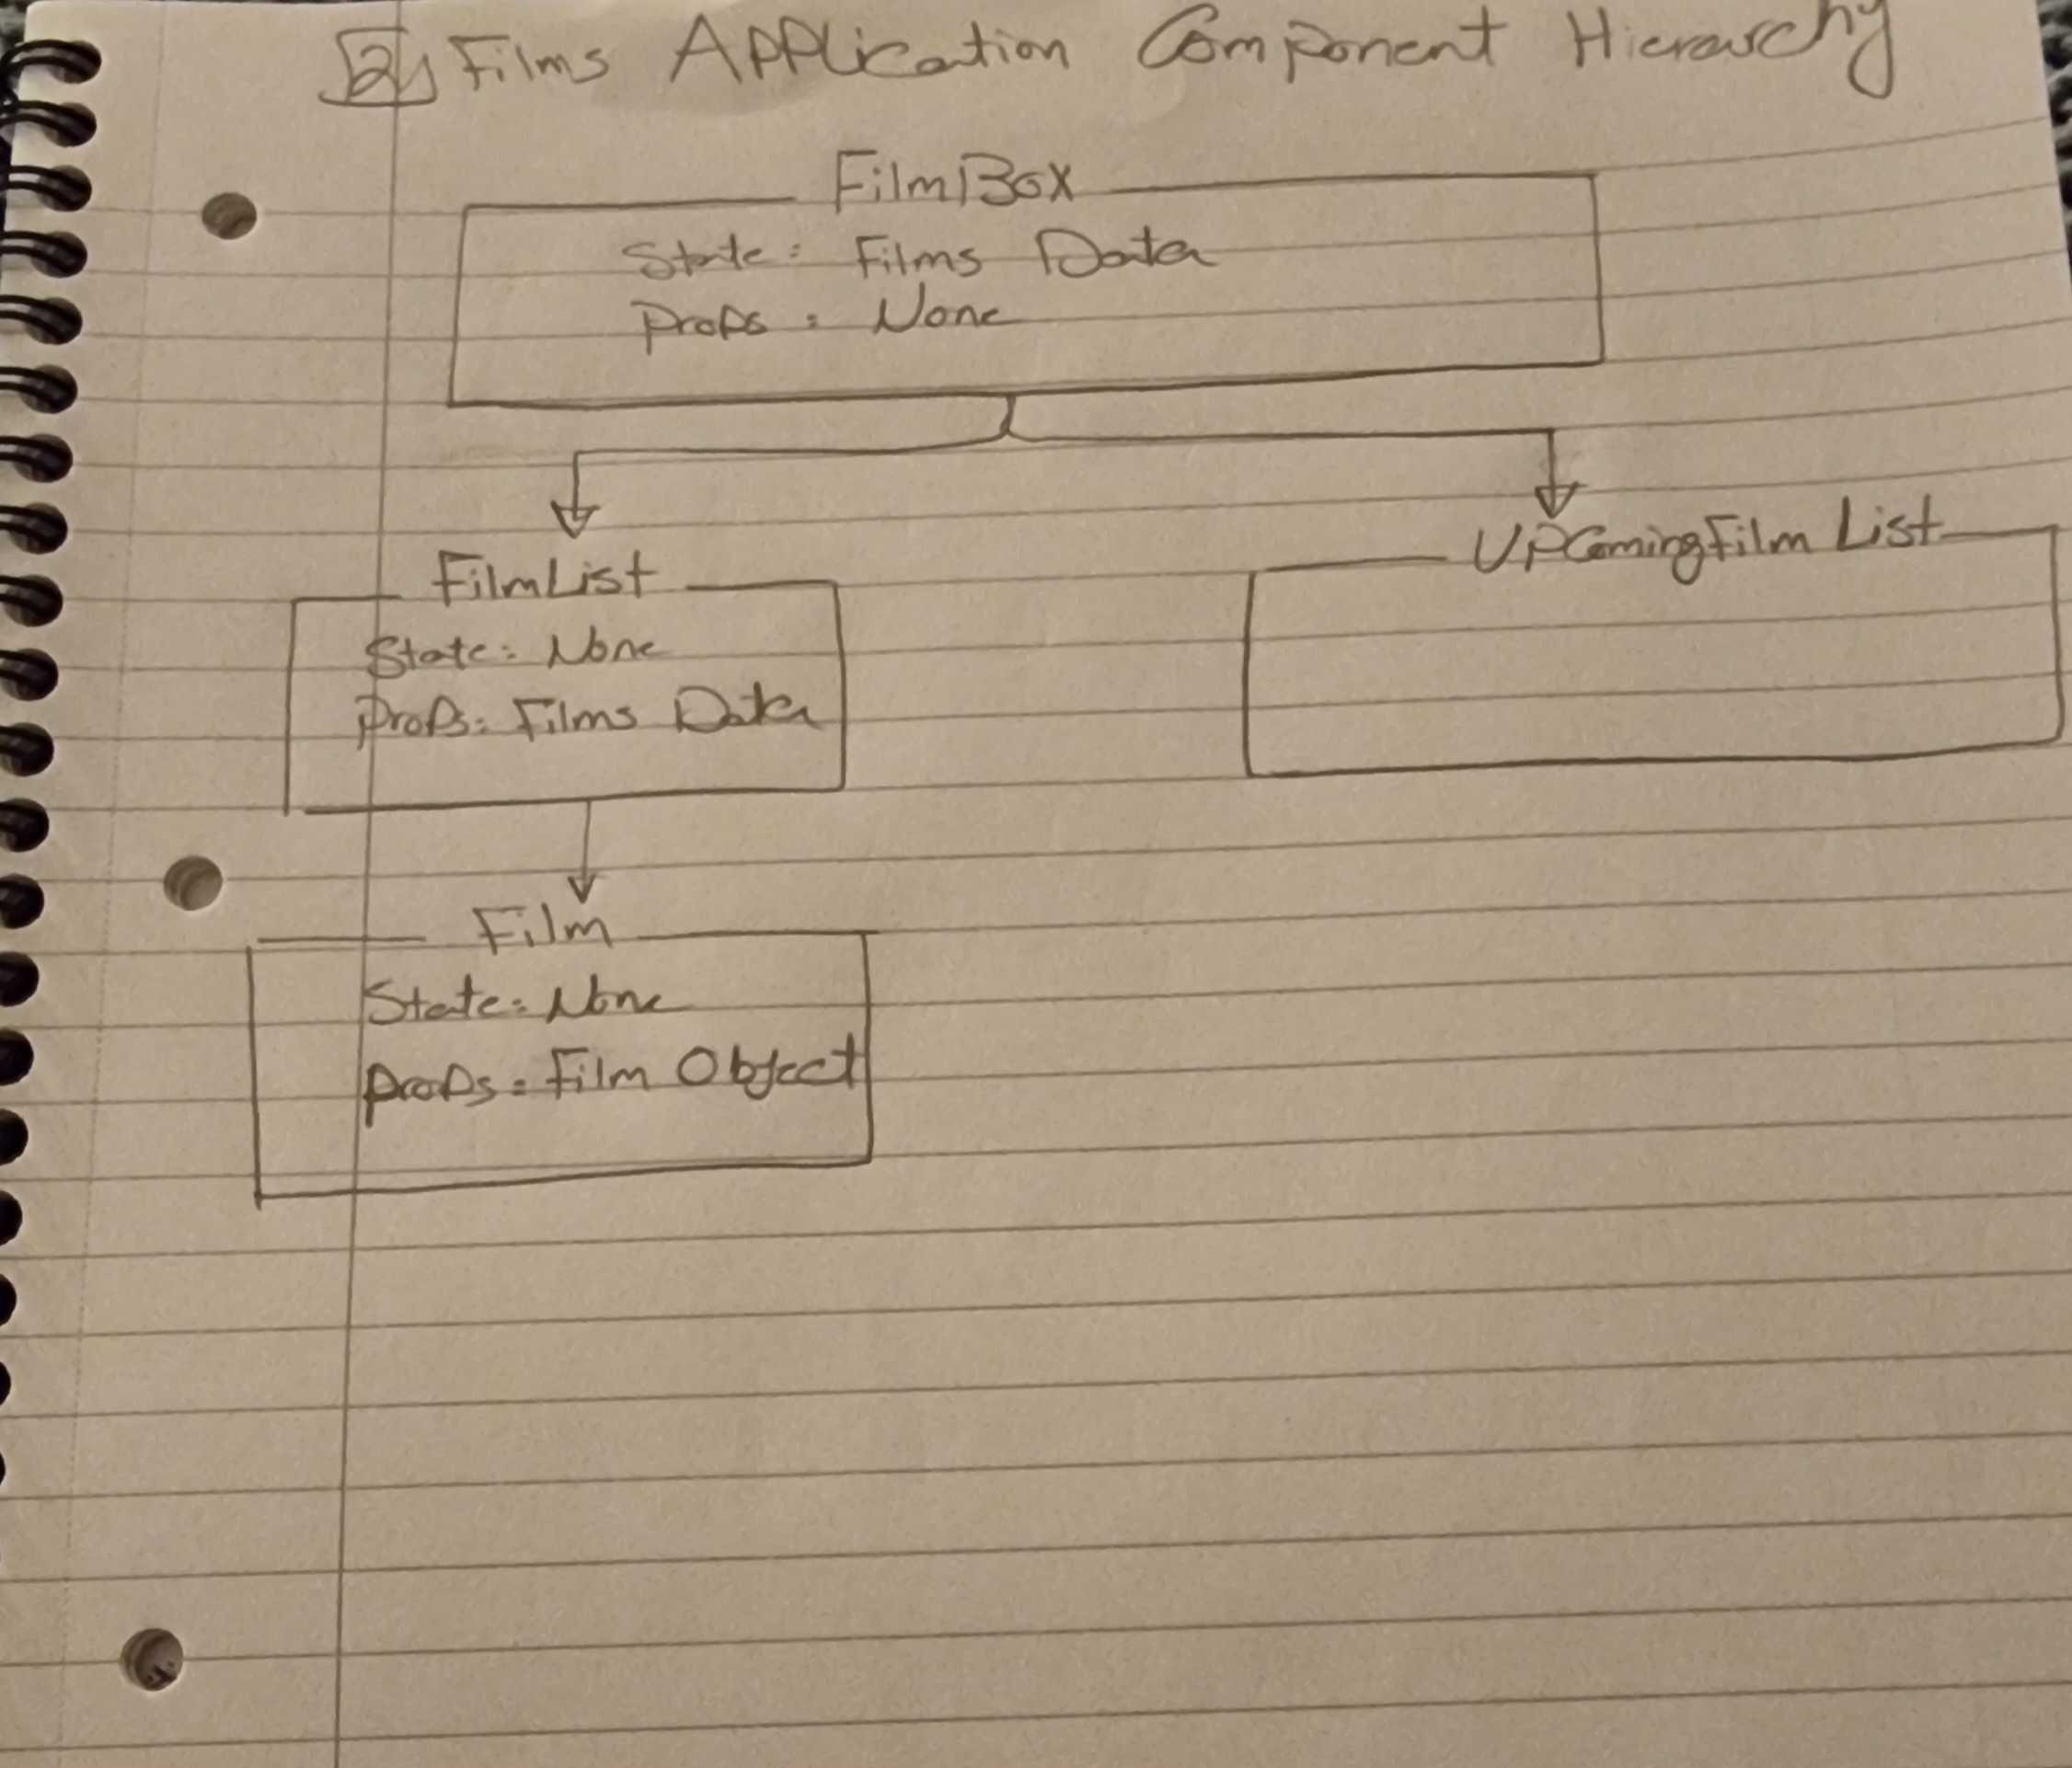 2 Films Application Component Hierarchy
FilmBox
State: Films Data
Props: None
FilmList
State: None
Props: Films Data
UpcomingFilm List
Film
State: None
Props: Film Object